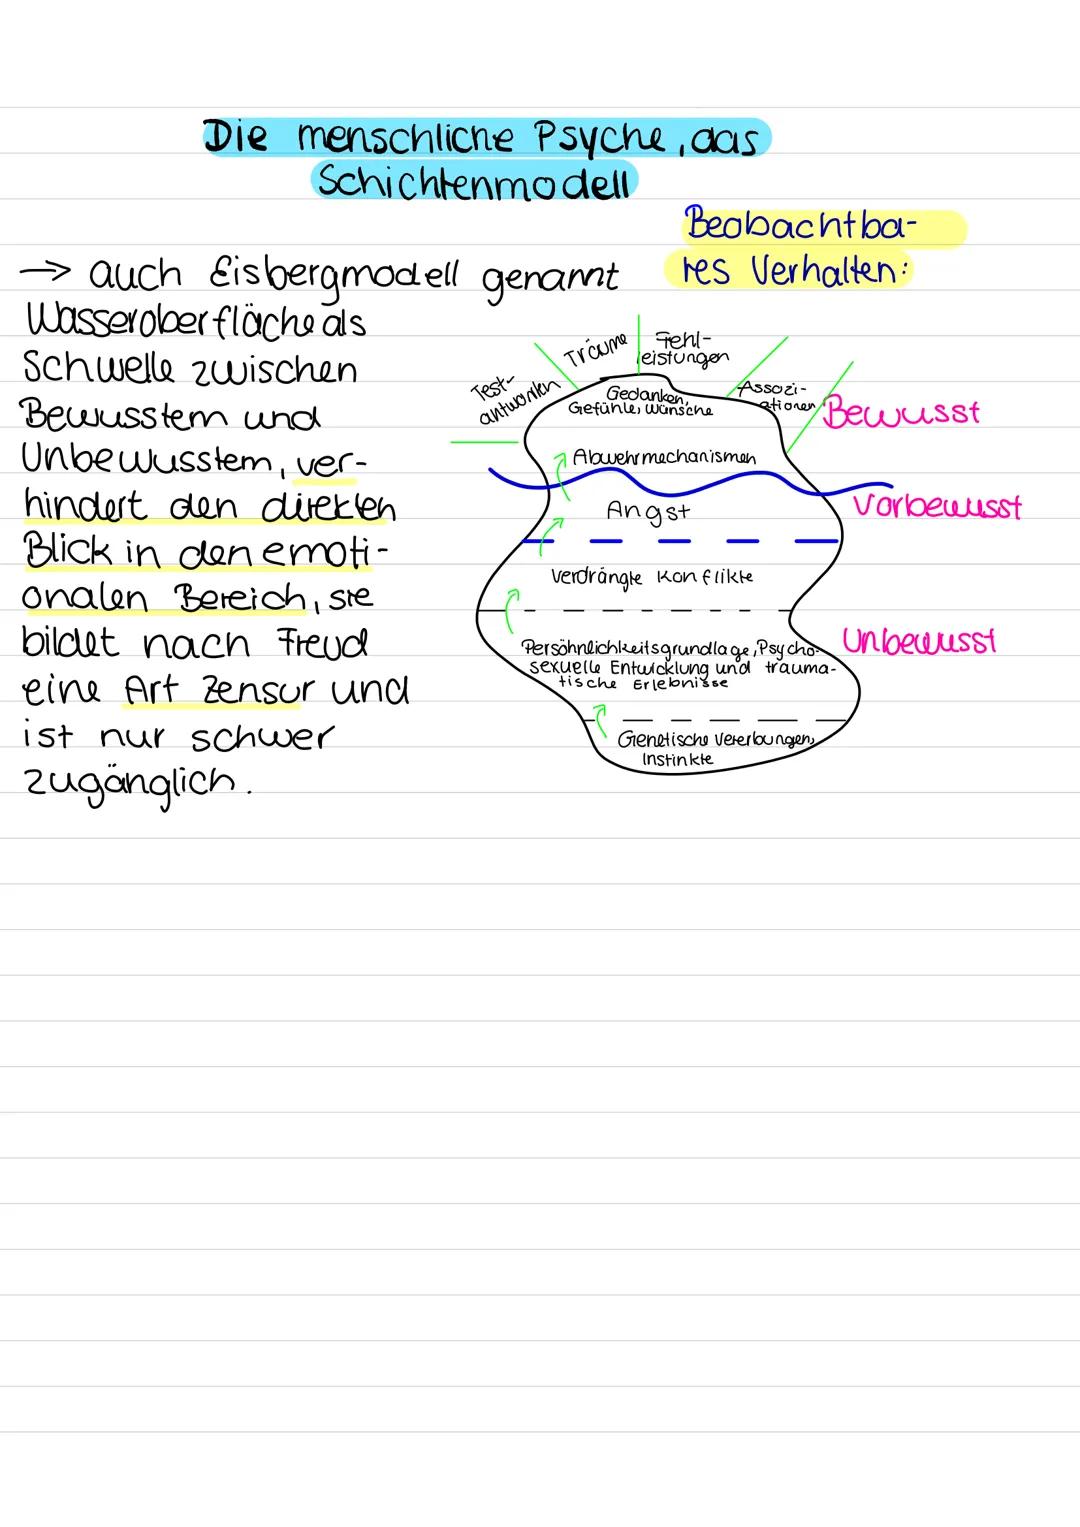 Die menschliche Psyche, das
Schichtenmodell
→ auch Eisbergmodell genannt
Wasseroberfläche als
Schwelle zwischen
Bewusstem und
Unbewusstem, ver-
hindert den direkten
Blick in den emoti-
onalen Bereich, sie
bildet nach Freud
eine Art Zensur und
ist nur schwer
zugänglich.
Beobachtba-
res Verhalten:
Test-
antworten
Träume
Fehl-
leistungen
Assozi-
ationen
Gedanken,
Gefühle, Wünsche
Bewusst
Abwehrmechanismen
Angst
Vorbewusst
Verdrängte Konflikte
Persöhnlichkeitsgrundlage, Psycho-
sexuelle Entwicklung und trauma-
tische Erlebnisse
Unbewusst
Genetische Vererbungen,
Instinkte